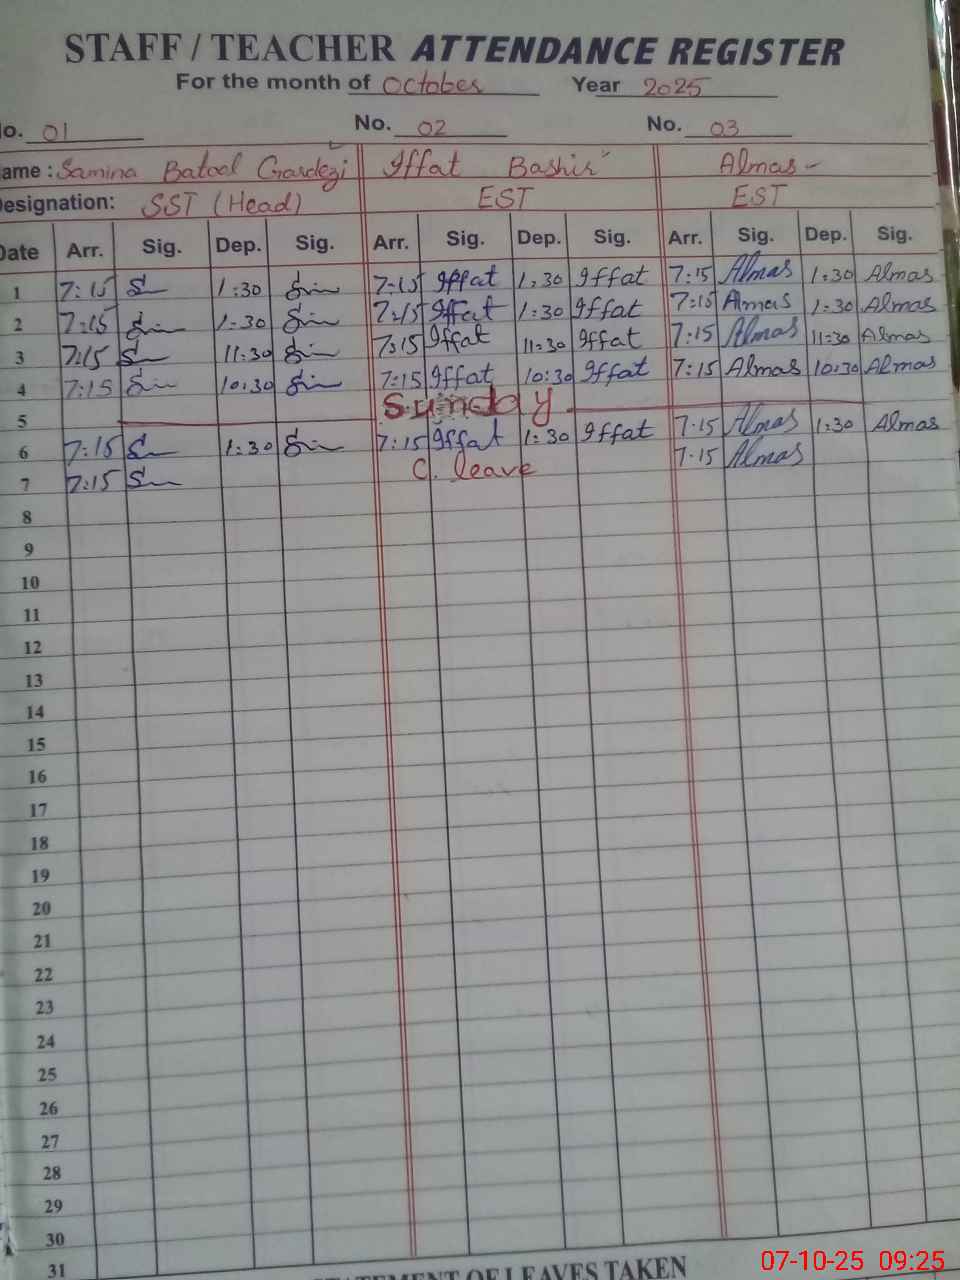 STAFF / TEACHER ATTENDANCE REGISTER
For the month of October Year 2025
No. 01 No. 02 No. 03
ame : Samina Batool Gardezi Iffat Bashir Almas
esignation: SST (Head) EST EST
Date Arr. Sig. Dep. Sig. Arr. Sig. Dep. Sig. Arr. Sig. Dep. Sig.
1 7:15 1:30 7:15 Iffat 1:30 Iffat 7:15 Almas 1:30 Almas
2 7:15 1:30 7:15 Iffat 1:30 Iffat 7:15 Almas 1:30 Almas
3 7:15 11:30 7:15 Iffat 11:30 Iffat 7:15 Almas 11:30 Almas
4 7:15 10:30 7:15 Iffat 10:30 Iffat 7:15 Almas 10:30 Almas
5 Sunday
6 7:15 1:30 7:15 Iffat 1:30 Iffat 7.15 Almas 1:30 Almas
7 7:15 C. leave 7.15 Almas
8
9
10
11
12
13
14
15
16
17
18
19
20
21
22
23
24
25
26
27
28
29
30
31
STATEMENT OF LEAVES TAKEN
07-10-25 09:25